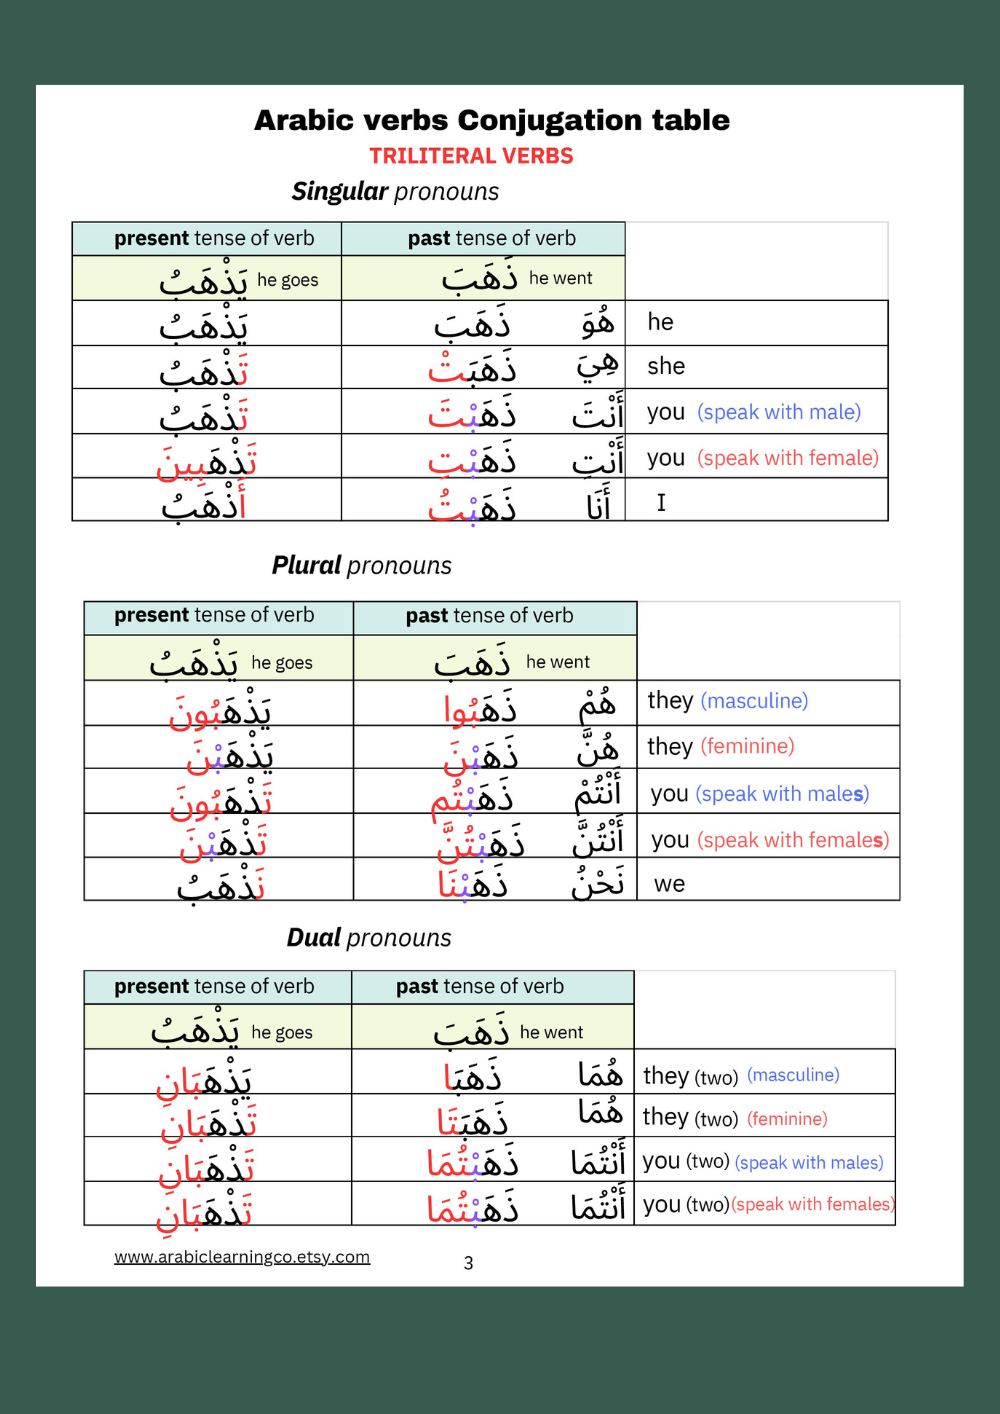 Arabic verbs Conjugation table
TRILITERAL VERBS
Singular pronouns
present tense of verb past tense of verb
يَذْهَبُ he goes ذَهَبَ he went
يَذْهَبُ ذَهَبَ هُوَ he
تَذْهَبُ ذَهَبَتْ هِيَ she
تَذْهَبُ ذَهَبْتَ أَنْتَ you (speak with male)
تَذْهَبِينَ ذَهَبْتِ أَنْتِ you (speak with female)
أَذْهَبُ ذَهَبْتُ أَنَا I
Plural pronouns
present tense of verb past tense of verb
يَذْهَبُ he goes ذَهَبَ he went
يَذْهَبُونَ ذَهَبُوا هُمْ they (masculine)
يَذْهَبْنَ ذَهَبْنَ هُنَّ they (feminine)
تَذْهَبُونَ ذَهَبْتُم أَنْتُمْ you (speak with males)
تَذْهَبْنَ ذَهَبْتُنَّ أَنْتُنَّ you (speak with females)
نَذْهَبُ ذَهَبْنَا نَحْنُ we
Dual pronouns
present tense of verb past tense of verb
يَذْهَبُ he goes ذَهَبَ he went
يَذْهَبَانِ ذَهَبَا هُمَا they (two) (masculine)
تَذْهَبَانِ ذَهَبَتَا هُمَا they (two) (feminine)
تَذْهَبَانِ ذَهَبْتُمَا أَنْتُمَا you (two) (speak with males)
تَذْهَبَانِ ذَهَبْتُمَا أَنْتُمَا you (two)(speak with females)
www.arabiclearningco.etsy.com 3